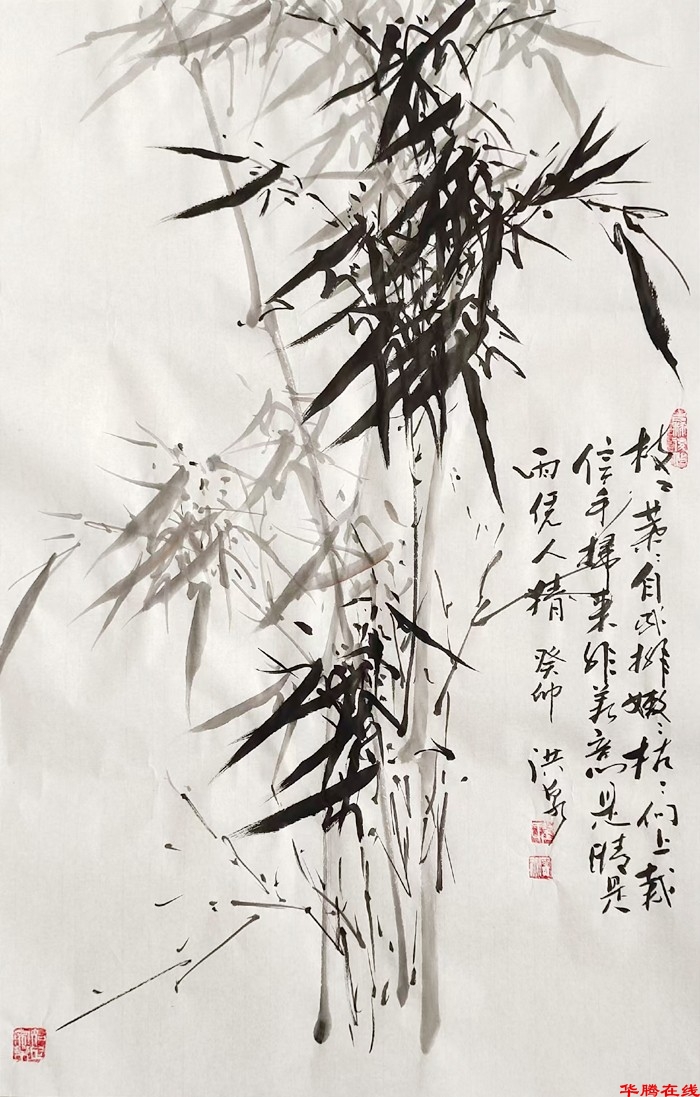 枝〻葉〻自成排嫩〻枯〻向上栽
信手掃来非著意是晴是
雨凭人猜 癸卯 洪泉
华腾在线